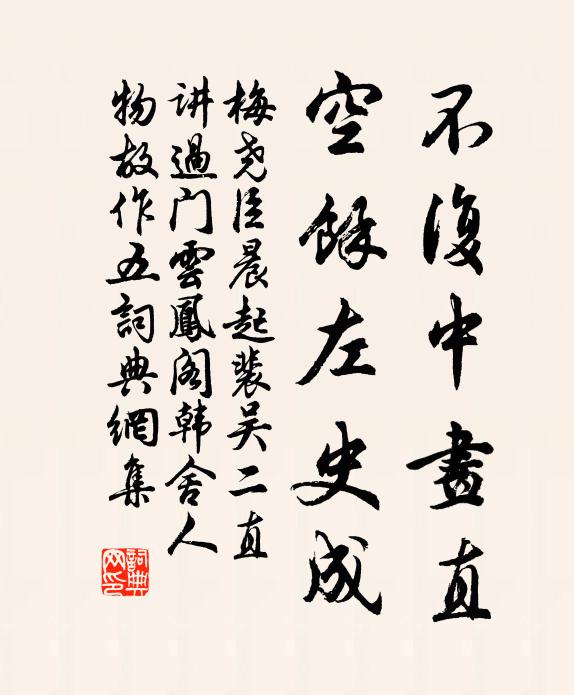 不復中畫直
空餘左史成
梅尧臣晨起裴吴二直
讲過门雲鳳阁韩舍人
物故作五詞典網集
詞典网印